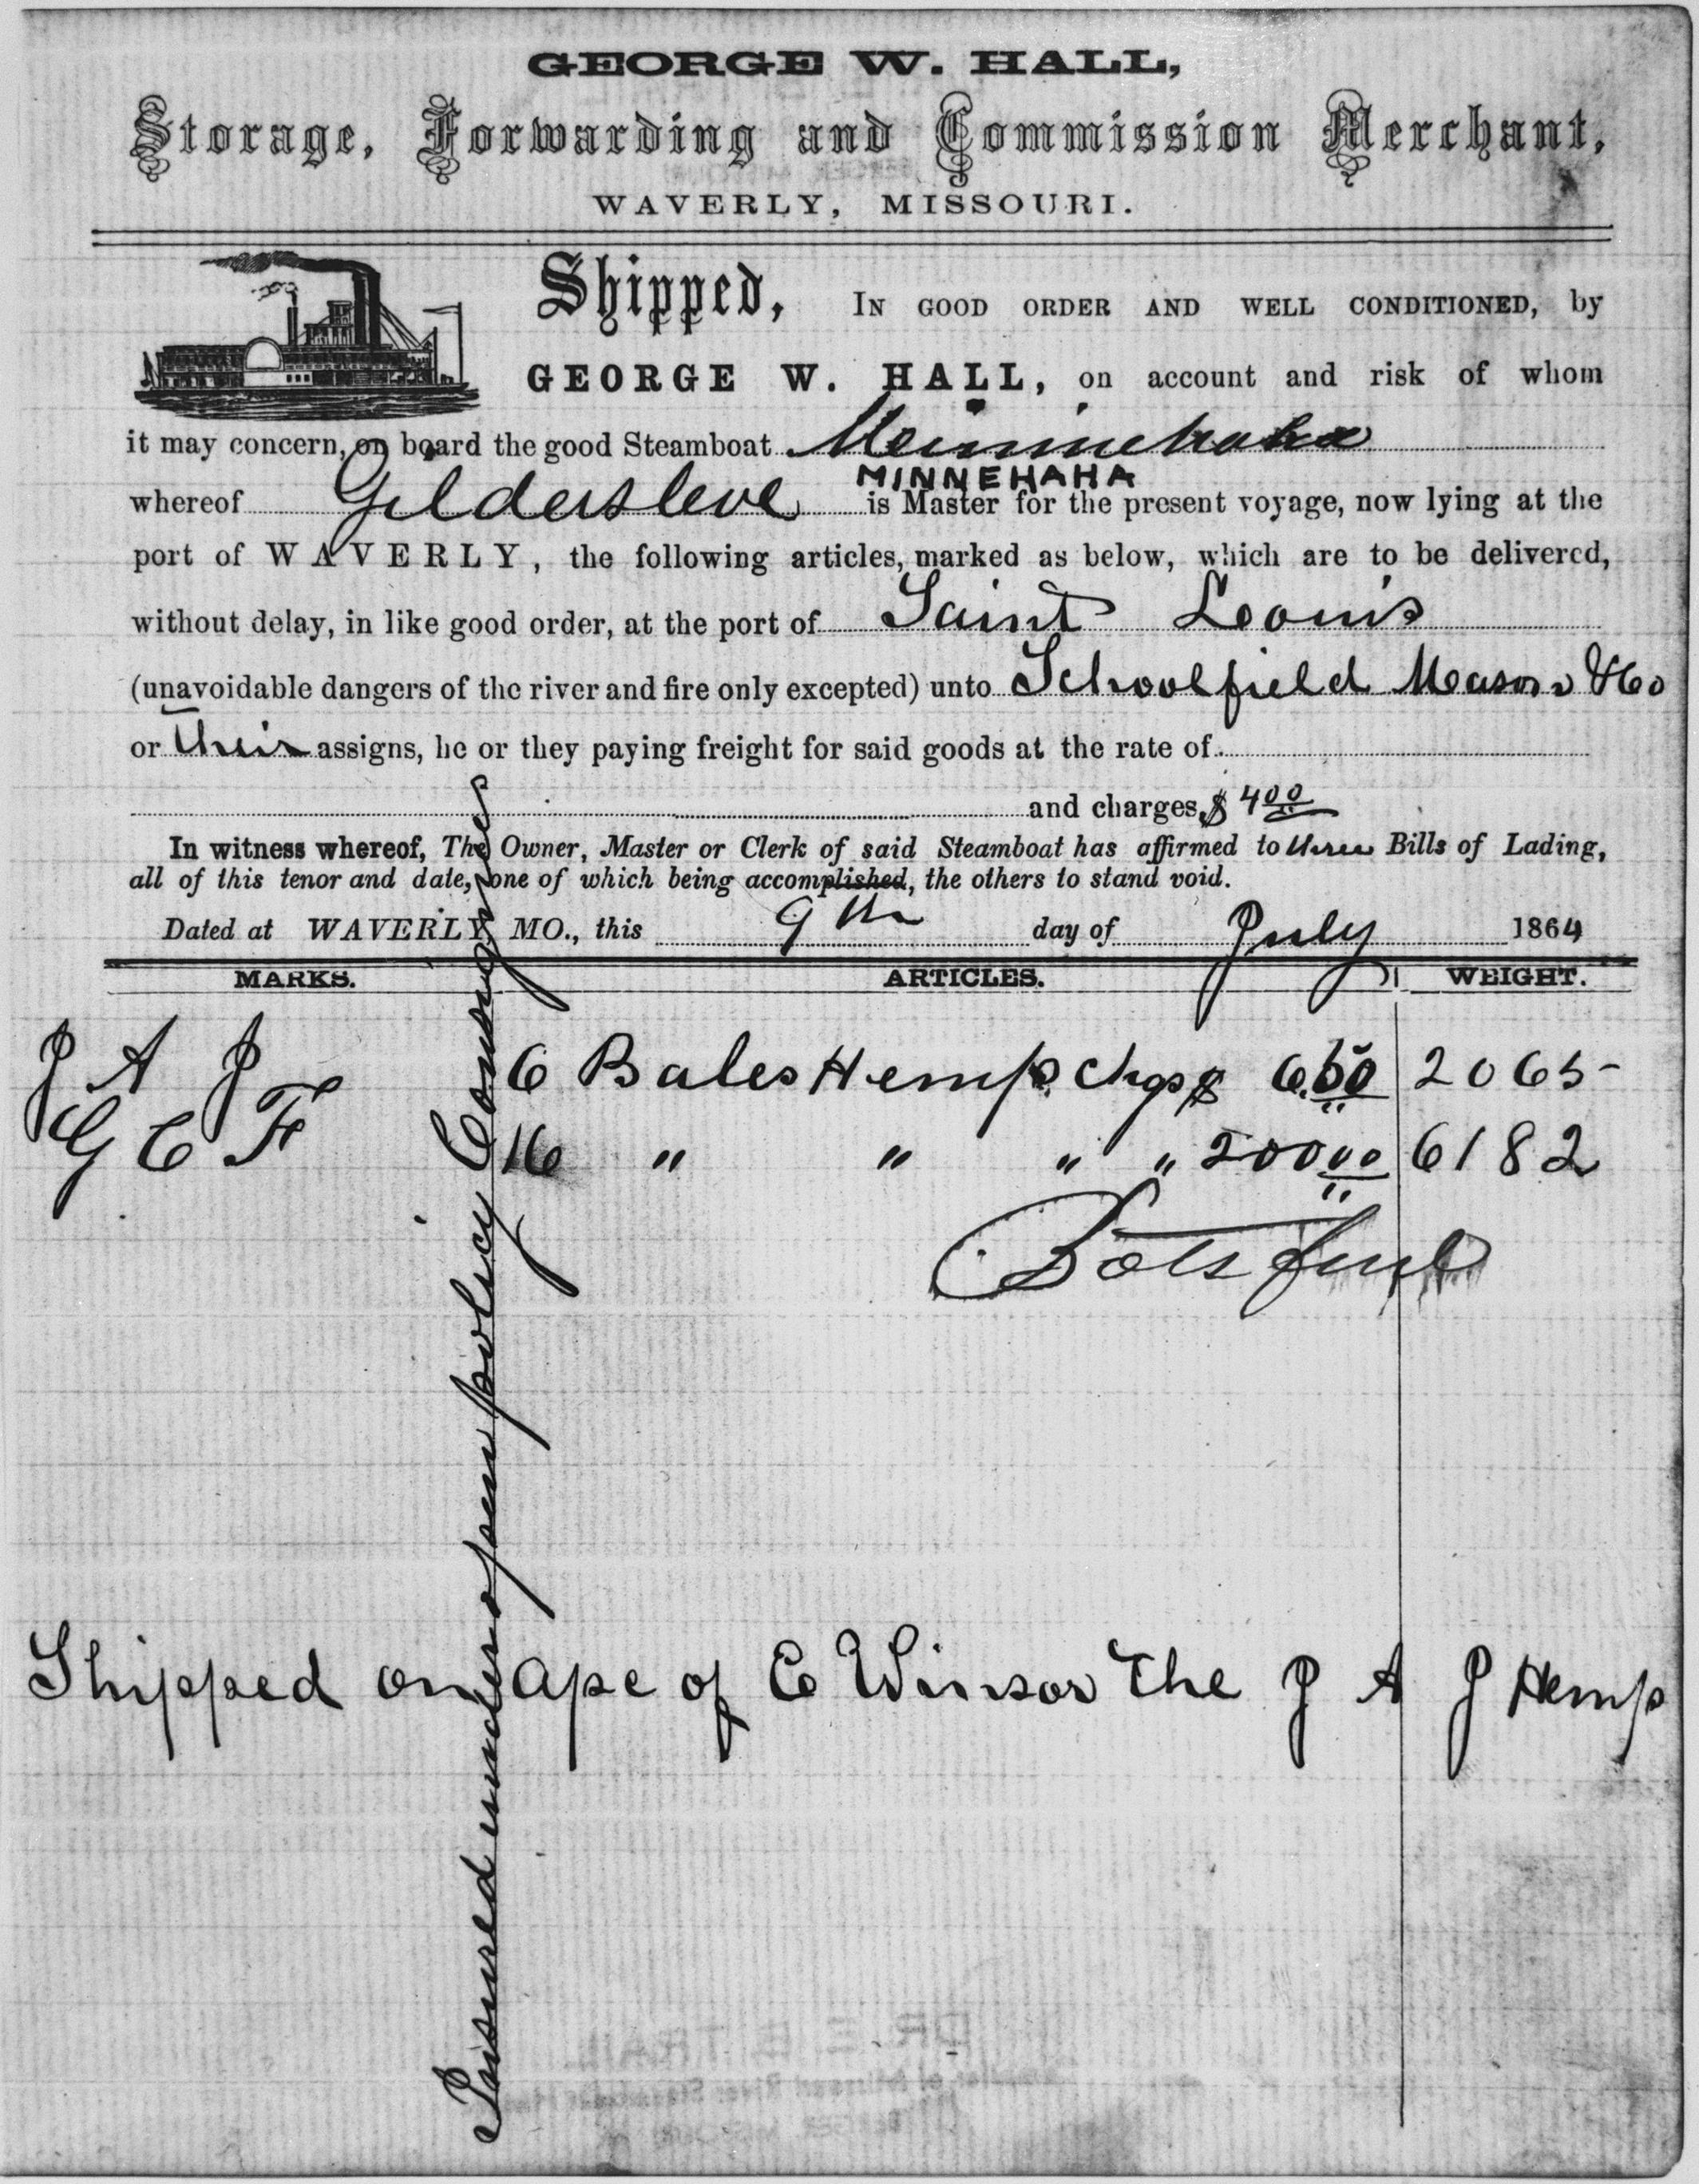 GEORGE W. HALL,
Storage, Forwarding and Commission Merchant,
WAVERLY, MISSOURI.
Shipped, IN GOOD ORDER AND WELL CONDITIONED, by
GEORGE W. HALL, on account and risk of whom
it may concern, on board the good Steamboat Meinniehaha
MINNEHAHA
whereof Gildersleve is Master for the present voyage, now lying at the
port of WAVERLY, the following articles, marked as below, which are to be delivered,
without delay, in like good order, at the port of Saint Leouis
(unavoidable dangers of the river and fire only excepted) unto Schoolfield Meason & Co
or their assigns, he or they paying freight for said goods at the rate of
and charges, $ 4 00
In witness whereof, The Owner, Master or Clerk of said Steamboat has affirmed to three Bills of Lading,
all of this tenor and date, one of which being accomplished, the others to stand void.
Dated at WAVERLY MO., this 9th day of July 1864
MARKS. ARTICLES. WEIGHT.
J A J 6 Bales Hemp Chgs $ 6.50 2065-
G C F 16 " " " " 200 00 6182
Shipped on ape of E Winsor the J A J Hemp
Insured under open policy Consignees
DR. E. B. TRAIL